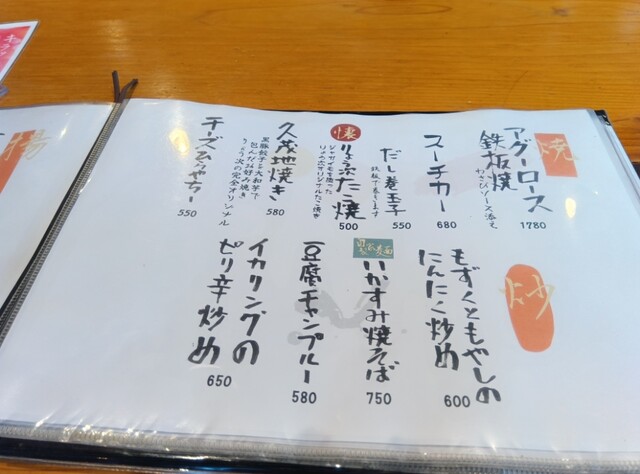 焼
アグーロース
鉄板焼
わさびソース添え
1780
スーチカー
680
だし巻玉子
鉄板で巻きます
550
懐
りょう次たこ焼
ジャガイモを使った
りょう次オリジナルたこ焼き
500
久茂地焼き
黒豚餃子を大和芋で
包んだお好み焼き
りょう次の完全オリジナル
580
チーズひらやちー
550
炒
もずくともやしの
にんにく炒め
600
自家製麺
いかすみ焼そば
750
豆腐チャンプルー
580
イカリングの
ピリ辛炒め
650
揚